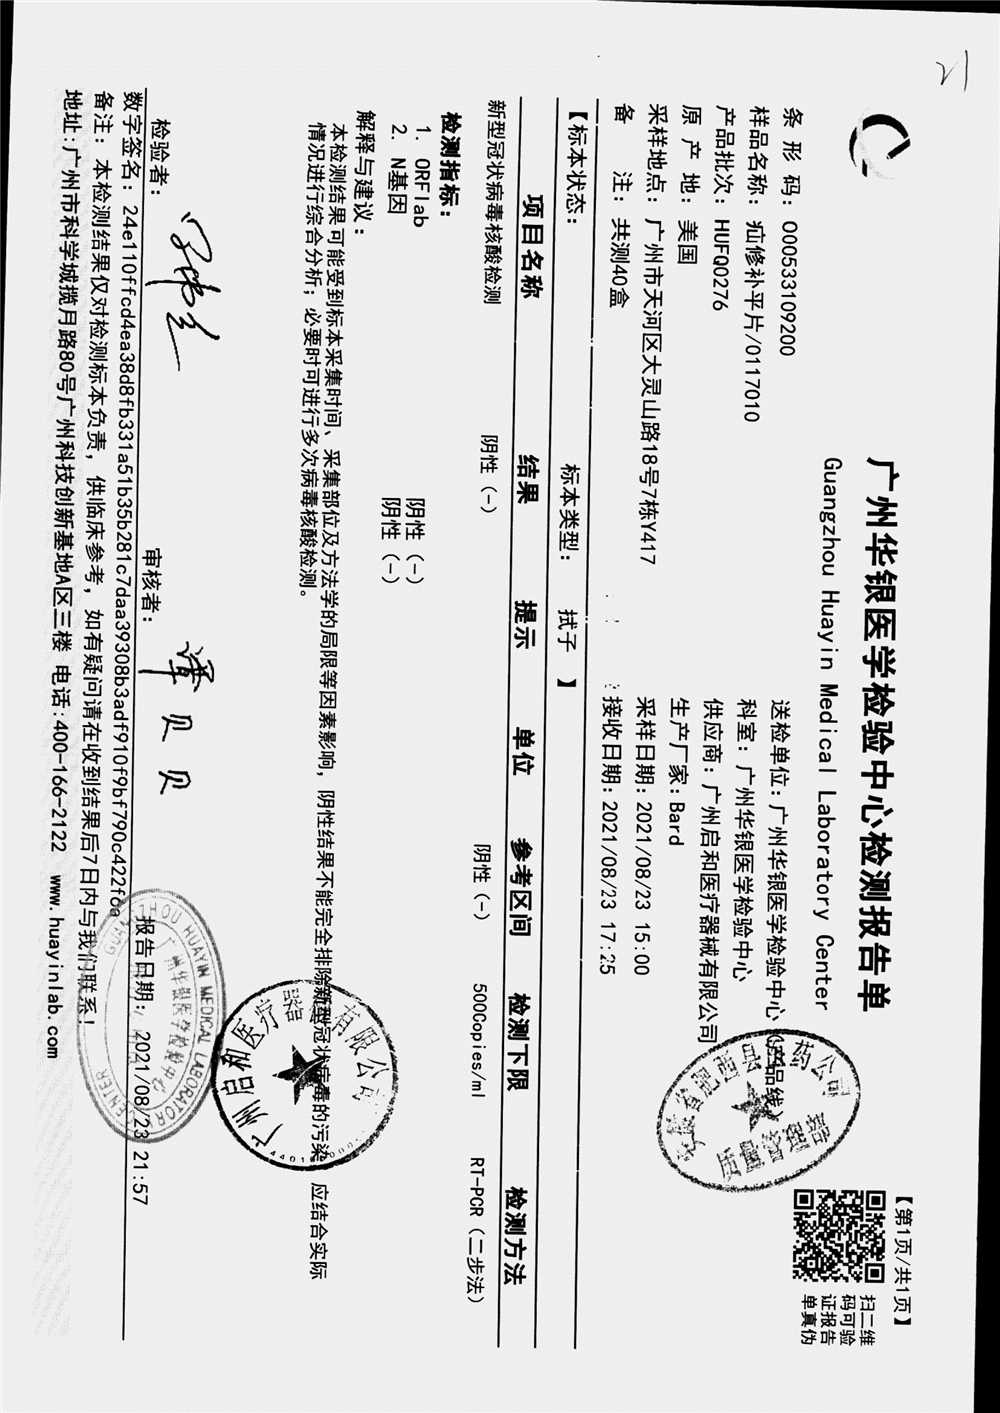 21
【第1页/共1页】
广州华银医学检验中心检测报告单
Guangzhou Huayin Medical Laboratory Center
扫二维
码可验
证报告
单真伪
条形码: 000533109200
送检单位: 广州华银医学检验中心（产品线）
样品名称: 疝修补平片/0117010
科室: 广州华银医学检验中心
产品批次: HUFQ0276
供应商: 广州启和医疗器械有限公司
原产地: 美国
生产厂家: Bard
采样地点: 广州市天河区大灵山路18号7栋Y417
采样日期: 2021/08/23 15:00
备注: 共测40盒
接收日期: 2021/08/23 17:25
【标本状态: 标本类型: 拭子 】
项目名称 结果 提示 单位 参考区间 检测下限 检测方法
新型冠状病毒核酸检测 阴性 (-) 阴性 (-) 500Copies/ml RT-PCR（二步法）
检测指标:
1. ORFlab 阴性 (-)
2. N基因 阴性 (-)
解释与建议:
本检测结果可能受到标本采集时间、采集部位及方法学的局限等因素影响, 阴性结果不能完全排除新型冠状病毒的污染 应结合实际
情况进行综合分析; 必要时可进行多次病毒核酸检测。
检验者: 审核者: 谭贝贝 报告日期: 2021/08/23 21:57
数字签名: 24e110ffcd4ea38d8fb331a51b35b281c7daa39308b3adf910f9bf790c422f6a
备注: 本检测结果仅对检测标本负责, 供临床参考, 如有疑问请在收到结果后7日内与我们联系!
地址:广州市科学城揽月路80号广州科技创新基地A区三楼 电话:400-166-2122 www.huayinlab.com
安徽省肥西县医药公司
质量管理部
广州启和医疗器械有限公司
GUANGZHOU HUAYIN MEDICAL LABORATORY CENTER
广州华银医学检验中心